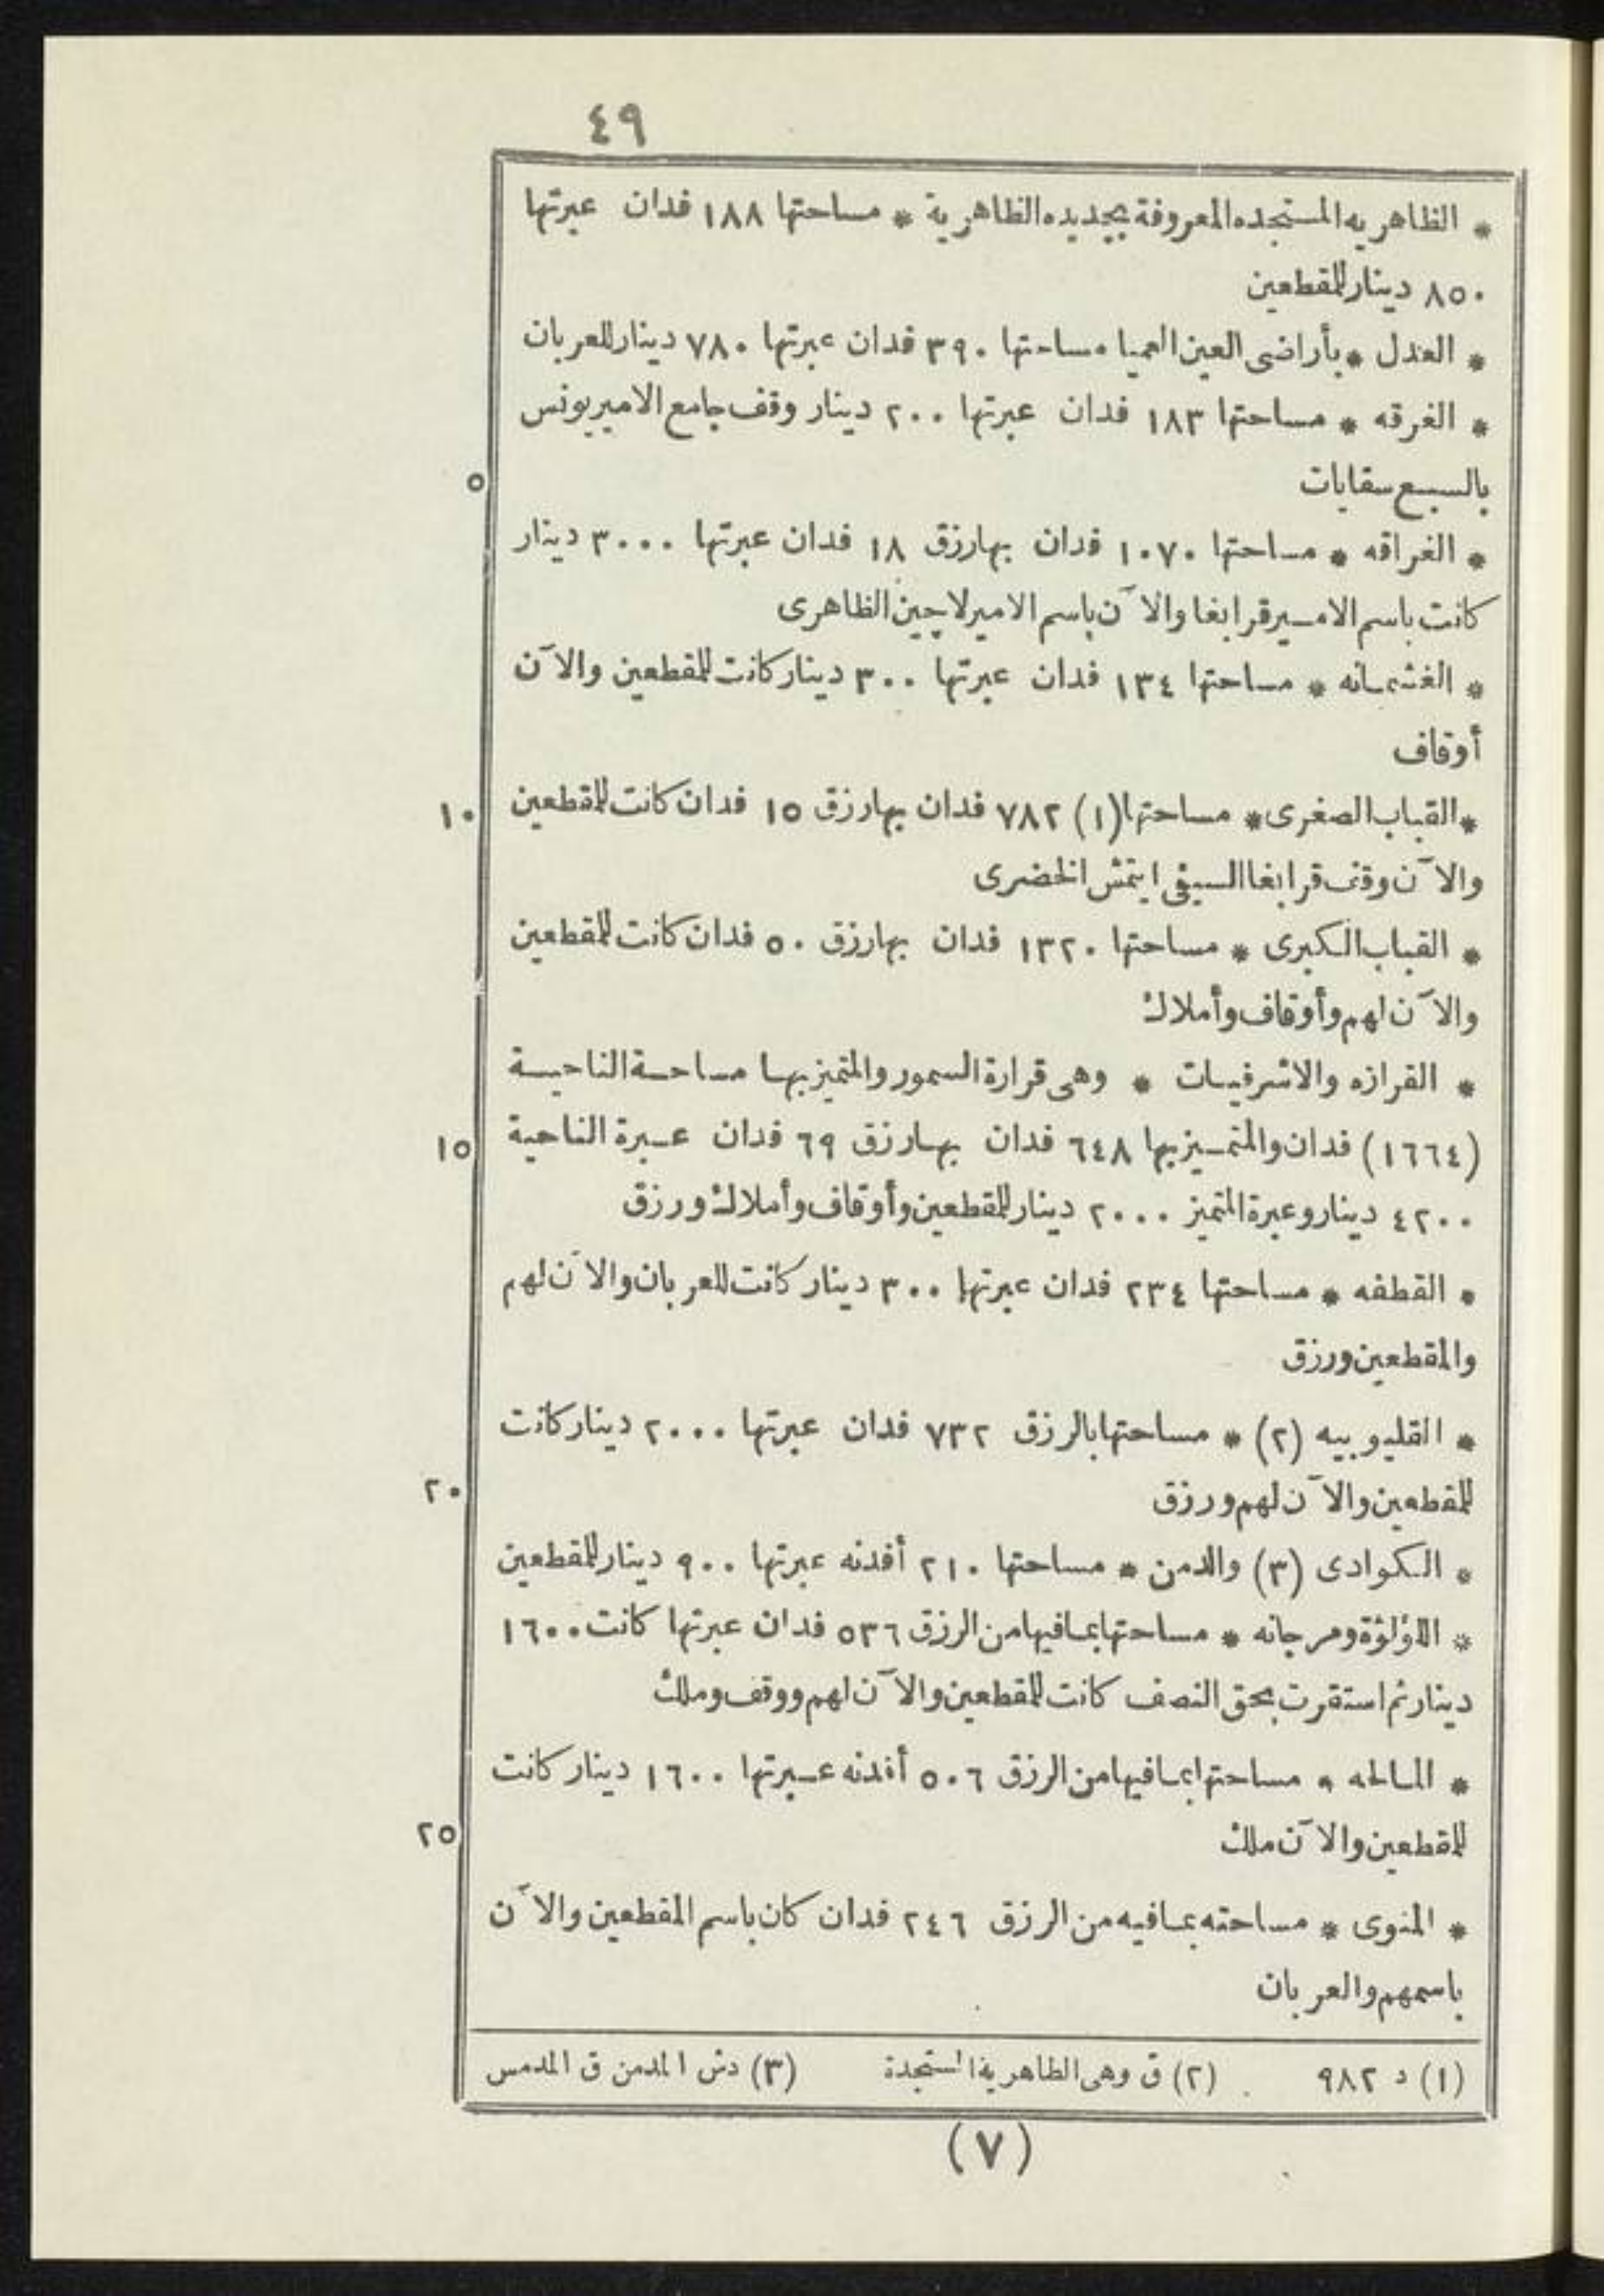 ٤٩
* الظاهريه المستجده المعروفة بجديده الظاهرية * مساحتها ١٨٨ فدان عبرتها
٨٥٠ دينار للمقطعين
* العدل * بأراضى العين العميا مساحتها ٣٩٠ فدان عبرتها ٧٨٠ دينار للعربان
* الغرقه * مساحتها ١٨٣ فدان عبرتها ٢٠٠ دينار وقف جامع الامير يونس
بالسبع سقايات
٥
* الغراقه * مساحتها ١٠٧٠ فدان بها رزق ١٨ فدان عبرتها ٣٠٠٠ دينار
كانت باسم الامير قرابغا والآن باسم الامير لاجين الظاهرى
* الغشمانه * مساحتها ١٣٤ فدان عبرتها ٣٠٠ دينار كانت للمقطعين والآن
أوقاف
* القباب الصغرى * مساحتها (١) ٧٨٢ فدان بها رزق ١٥ فدان كانت للمقطعين
١٠
والآن وقف قرابغا السيفى ايتمش الخضرى
* القباب الكبرى * مساحتها ١٣٢٠ فدان بها رزق ٥٠ فدان كانت للمقطعين
والآن لهم وأوقاف وأملاك
* القرازه والاشرفيات * وهى قرارة السمور والمتميز بها مساحة الناحية
(١٦٦٤) فدان والمتميز بها ٦٤٨ فدان بها رزق ٦٩ فدان عبرة الناحية
١٥
٤٢٠٠ دينار وعبرة المتميز ٢٠٠٠ دينار للمقطعين وأوقاف وأملاك ورزق
* القطفه * مساحتها ٢٣٤ فدان عبرتها ٣٠٠ دينار كانت للعربان والآن لهم
والمقطعين ورزق
* القليوبيه (٢) * مساحتها بالرزق ٧٣٢ فدان عبرتها ٢٠٠٠ دينار كانت
للمقطعين والآن لهم ورزق
٢٠
* الكوادى (٣) والدمن * مساحتها ٢١٠ أفدنه عبرتها ٩٠٠ دينار للمقطعين
* اللؤلؤة ومرجانه * مساحتها بما فيها من الرزق ٥٣٦ فدان عبرتها كانت ١٦٠٠
دينار ثم استقرت بحق النصف كانت للمقطعين والآن لهم ووقف وملك
* المالحه * مساحتها بما فيها من الرزق ٥٠٦ أفدنه عبرتها ١٦٠٠ دينار كانت
للمقطعين والآن ملك
٢٥
* المنوى * مساحته بما فيه من الرزق ٢٤٦ فدان كان باسم المقطعين والآن
باسمهم والعربان
(١) د ٩٨٢ (٢) ق وهى الظاهرية المستجدة (٣) دش المدمن ق المدمس
(٧)